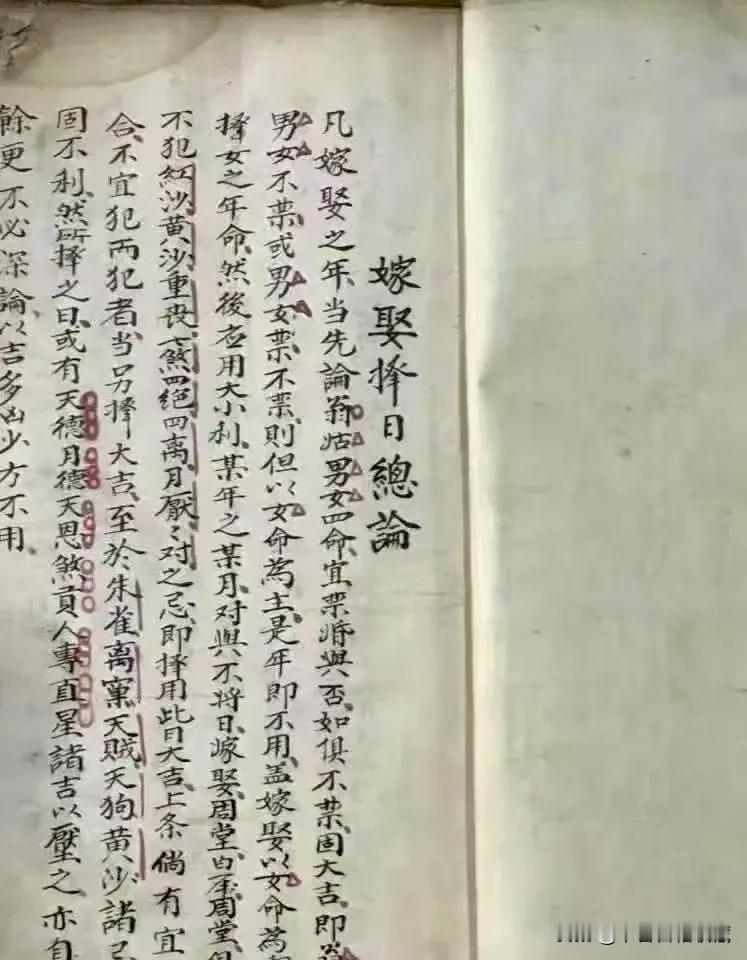 嫁娶擇日總論
凡嫁娶之年、当先論翁姑男女四命、宜禁婚與否、如俱不禁、固大吉、即翁
男女不禁、或男女禁、不禁、則但以女命為主、是年即不用、盖嫁娶以女命為
擇女之年命、然後在用大小利、某年之某月、对與不将日、嫁娶周堂、白虎周堂、
不犯紅沙黄沙重喪七煞四絕四離月厭々对之忌、即擇用此日大吉、上条倘有宜
合、不宜犯而犯者、当另擇大吉、至於朱雀離窠天賊、天狗黄沙諸忌
固不利、然所擇之日、或有天德月德天恩煞貢人專直星諸吉以壓之、亦自
餘更不必深論、以吉多凶少方不用、